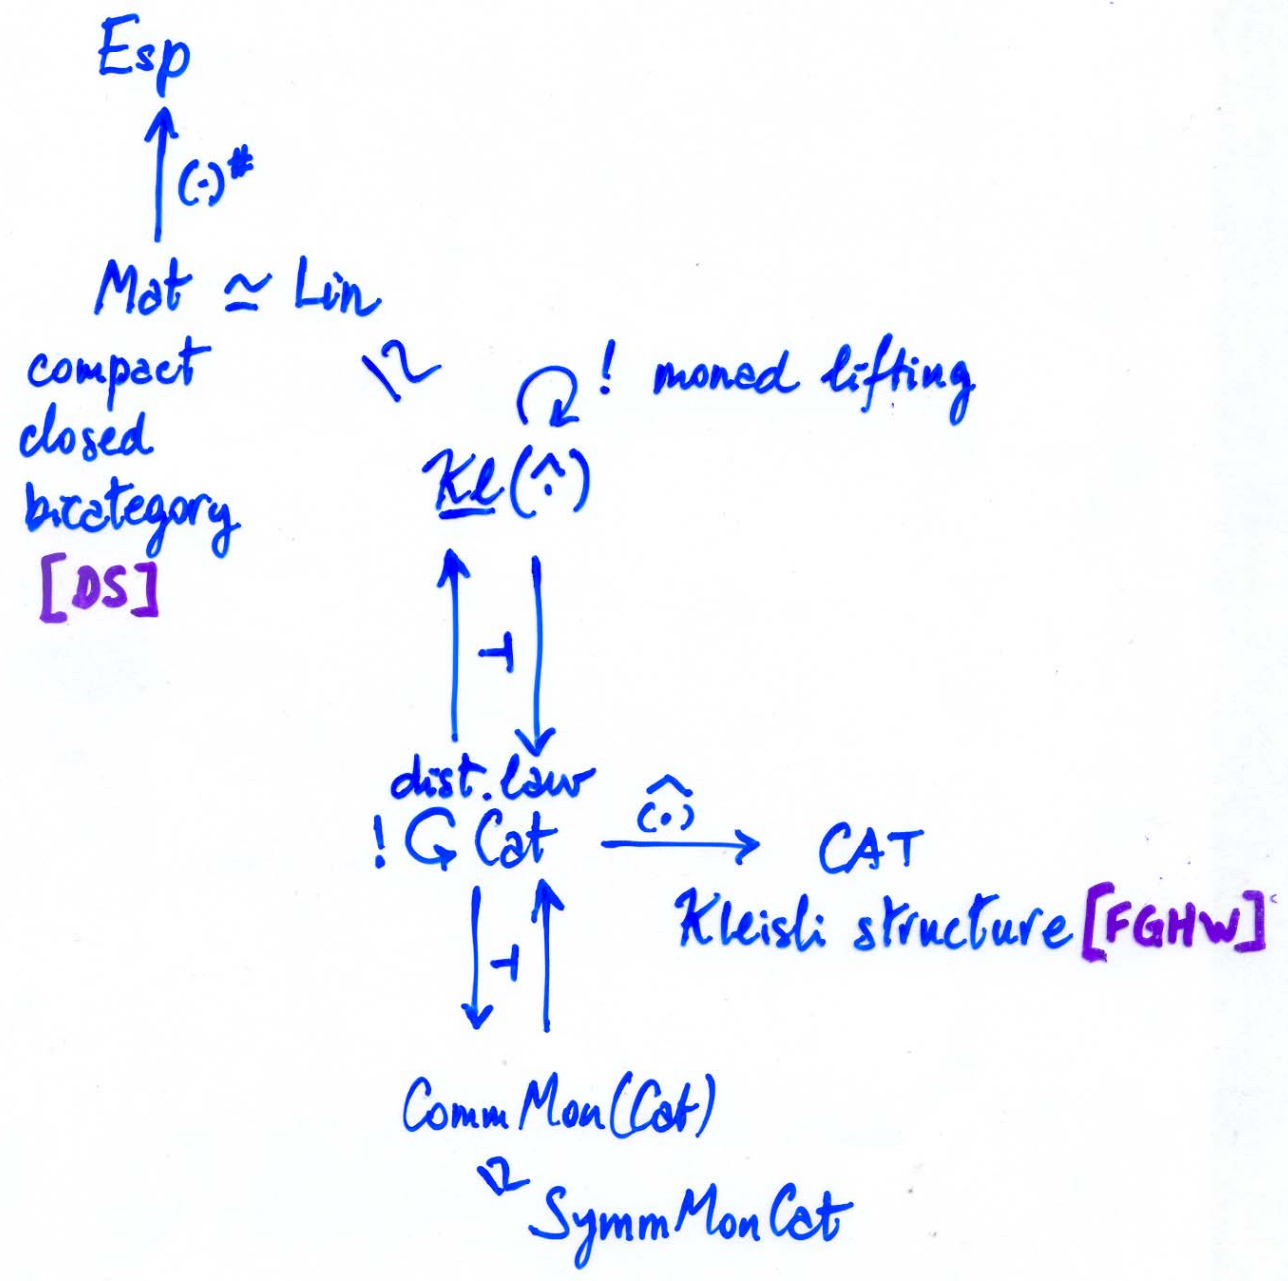 Esp
(·)#
Mat ≃ Lin
compact
closed
bicategory
[DS]
≃
! monad lifting
Kl(^·)
⊣
dist. law
! Cat
(^·)
CAT
Kleisli structure [FGHW]
⊣
CommMon(Cat)
≃
SymmMonCat